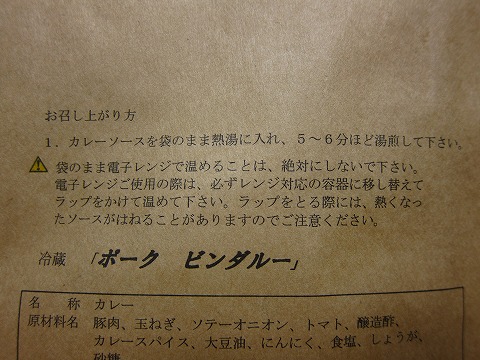 お召し上がり方
1．カレーソースを袋のまま熱湯に入れ、5～6分ほど湯煎して下さい。
袋のまま電子レンジで温めることは、絶対にしないで下さい。
電子レンジご使用の際は、必ずレンジ対応の容器に移し替えて
ラップをかけて温めて下さい。ラップをとる際には、熱くなっ
たソースがはねることがありますのでご注意ください。
冷蔵 「ポーク ビンダルー」
名 称 カレー
原材料名 豚肉、玉ねぎ、ソテーオニオン、トマト、醸造酢、
カレースパイス、大豆油、にんにく、食塩、しょうが、
砂糖